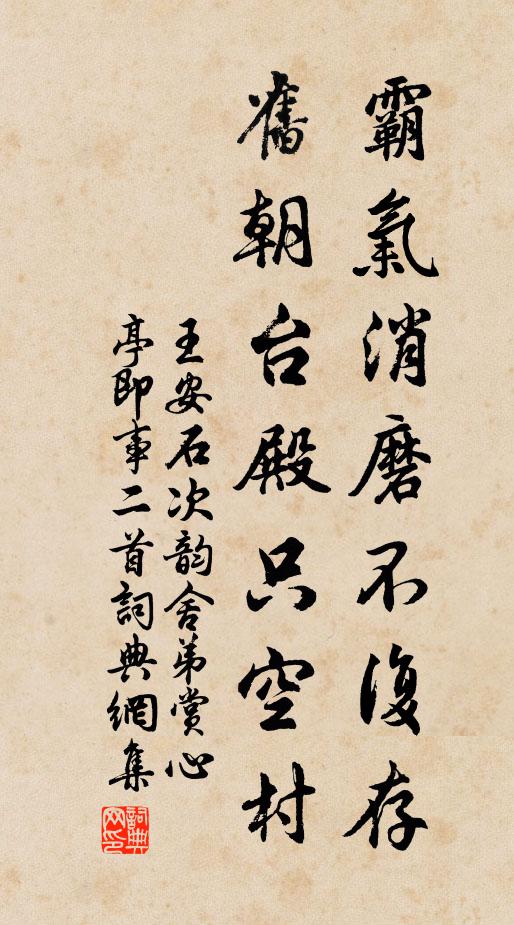 霸氣消磨不復存
舊朝台殿只空村
王安石次韵舍弟赏心
亭即事二首詞典網集
詞典网印